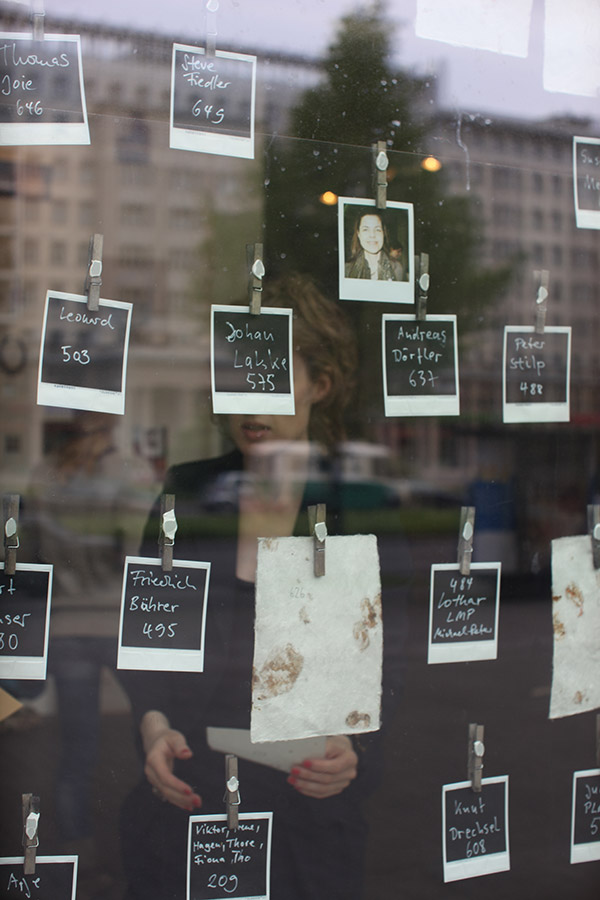 Thomas
Joie
646
Steve
Fiedler
649
Leonard
503
Johan
575
Andreas
Dörfler
637
Peter
Stilp
488
Friedrich
Bührer
495
484
Lothar
LMP
Michael Peter
Viktor, Irene,
Hagen, Thore,
Fiona, Tao
209
Knut
Drechsel
608